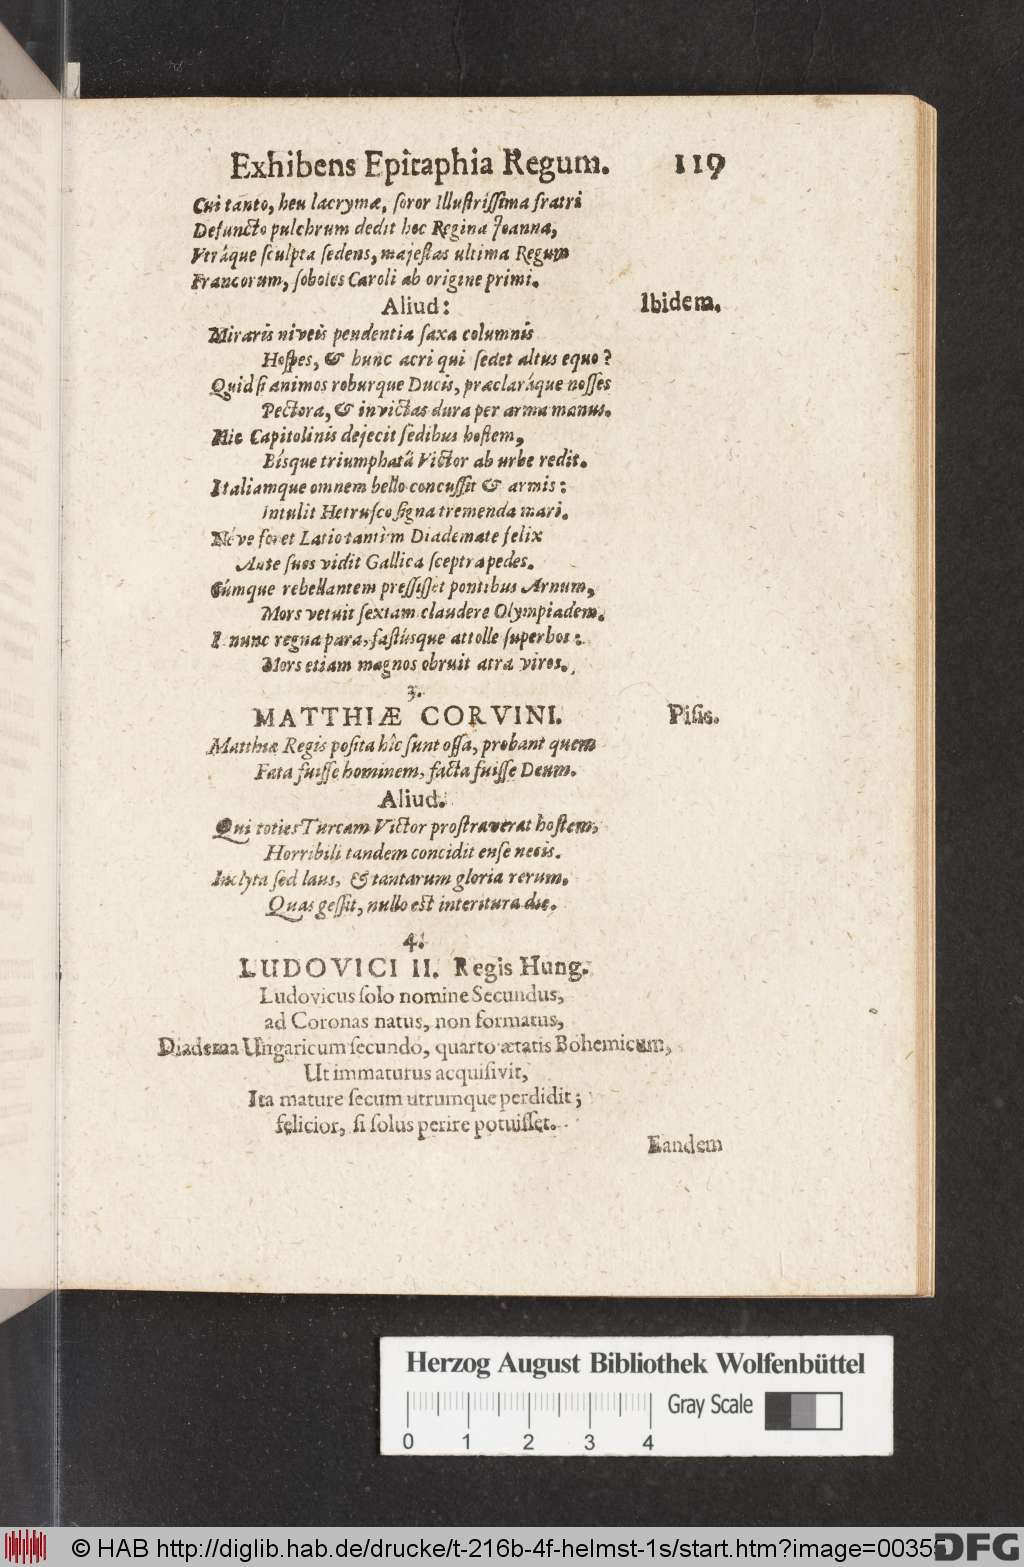 Exhibens Epîtaphia Regum. 119
Cui tanto, heu lacrymæ, ſoror Illuſtriſſima fratri
Defuncto pulchrum dedit hoc Regina Joanna,
Vtráque ſculpta ſedens, majeſtas ultima Regum
Francorum, ſoboles Caroli ab origine primi.
Aliud: Ibidem.
Miraris niveis pendentia ſaxa columnis
Hoſpes, & hunc acri qui ſedet altus equo?
Quid ſi animos roburque Ducis, præclaráque noſſes
Pectora, & invictas dura per arma manus.
Hic Capitolinis dejecit ſedibus hoſtem,
Bísque triumphatâ Victor ab urbe redit.
Italiamque omnem bello concuſſit & armis:
Intulit Hetruſco ſigna tremenda mari.
Néve foret Latio tantùm Diademate felix
Ante ſuos vidit Gallica ſceptra pedes.
Cúmque rebellantem preſſiſſet pontibus Arnum,
Mors vetuit ſextam claudere Olympiadem.
I nunc regna para, faſtúsque attolle ſuperbos:
Mors etiam magnos obruit atra viros.
3.
MATTHIÆ CORVINI. Piſis.
Matthiæ Regis poſita hîc ſunt oſſa, probant quem
Fata fuiſſe hominem, facta fuiſſe Deum.
Aliud.
Qui toties Turcam Victor proſtraverat hoſtem,
Horribili tandem concidit enſe necis.
Inclyta ſed laus, & tantarum gloria rerum.
Quas geſſit, nullo eſt interitura die.
4.
LUDOVICI II. Regis Hung.
Ludovicus ſolo nomine Secundus,
ad Coronas natus, non formatus,
Diadema Ungaricum ſecundo, quarto ætatis Bohemicum,
Ut immaturus acquiſivit,
Ita mature ſecum utrumque perdidit;
felicior, ſi ſolus perire potuiſſet.
Eandem
Herzog August Bibliothek Wolfenbüttel
Gray Scale
0 1 2 3 4
© HAB http://diglib.hab.de/drucke/t-216b-4f-helmst-1s/start.htm?image=00355
DFG